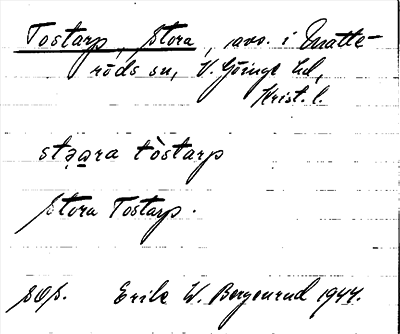 Tostarp, Stora, avs. i Matte-
röds sn, V. Göinge hd,
Krist. l.
stǫara tòstarp
Stora Tostarp.
sOs. Erik W. Bergenrud 1944.